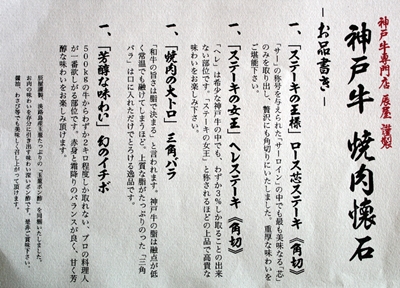 神戸牛専門店 辰屋 謹製
神戸牛 焼肉懐石
―お品書き―
一、【ステーキの王様】ロース芯ステーキ《角切》
「サー」の称号を与えられた「サーロイン」の中でも最も美味なる「芯」
のみを取り出し、贅沢にも角切りにいたしました。重厚な味わいを
ご堪能下さい。
一、【ステーキの女王】ヘレステーキ《角切》
「ヘレ」は希少な神戸牛の中でも、わずか3%しか取ることの出来
ない部位です。「ステーキの女王」と称されるほどの上品で高貴な
味わいをお楽しみ下さい。
一、【焼肉の大トロ】三角バラ
「和牛の旨さは脂で決まる」と言われます。神戸牛の脂は融点が低
く常温でも融けてしまうほど。上質な脂がたっぷりのった「三角
バラ」は口に入れただけでとろける逸品です。
一、【芳醇な味わい】幻のイチボ
500kgの牛からわずか2キロ程度しか取れない、プロの料理人
が一番欲しがる部位です。赤身と霜降りのバランスが良く、甘く芳
醇な味わいをお楽しみ頂けます。
醤油、わさび等でも美味しく召し上がって頂けます。